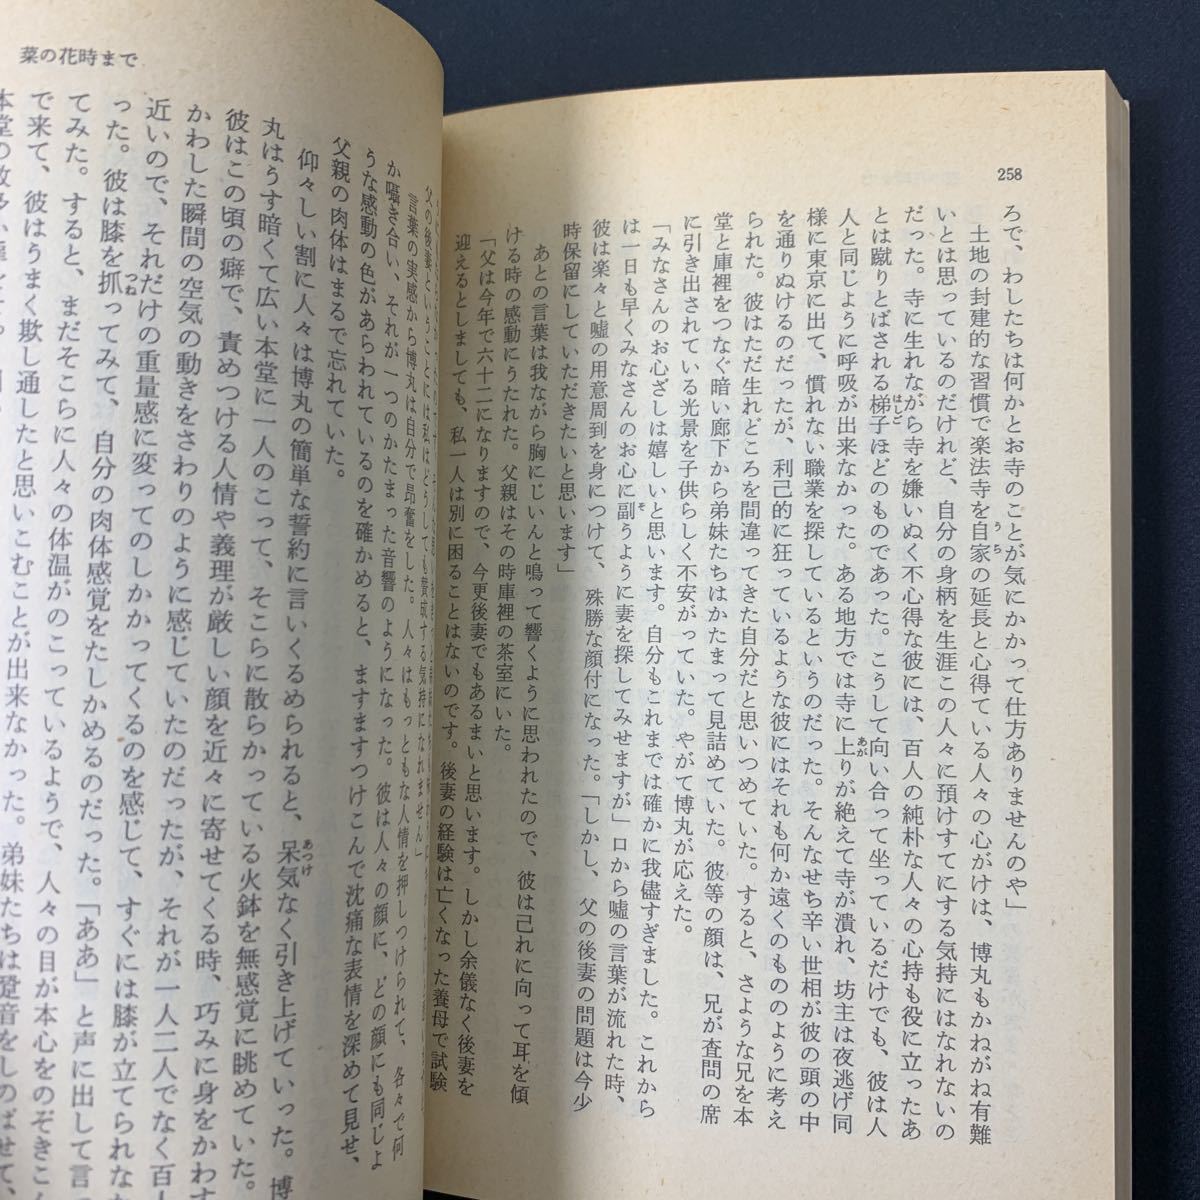 258
ろで、わしたちは何かとお寺のことが気にかかって仕方ありませんのや」
土地の封建的な習慣で楽法寺を自家の延長と心得ている人々の心がけは、博丸もかねがね有難
いとは思っているのだけれど、自分の身柄を生涯この人々に預けすてにする気持にはなれないの
だった。寺に生れながら寺を嫌いぬく不心得な彼には、百人の純朴な人々の心持も役に立ったあ
とは蹴りとばされる梯子ほどのものであった。こうして向い合って坐っているだけでも、彼は人
人と同じように呼吸が出来なかった。ある地方では寺に上りが絶えて寺が潰れ、坊主は夜逃げ同
様に東京に出て、慣れない職業を探しているというのだった。そんなせち辛い世相が彼の頭の中
を通りぬけるのだったが、利己的に狂っているような彼にはそれも何か遠くのもののように考え
られた。彼はただ生れどころを間違ってきた自分だと思いつめていた。すると、さような兄を本
堂と庫裡をつなぐ暗い廊下から弟妹たちはかたまって見詰めていた。彼等の顔は、兄が査問の席
に引き出されている光景を子供らしく不安がっていた。やがて博丸が応えた。
「みなさんのお心ざしは嬉しいと思います。自分もこれまでは確かに我儘すぎました。これから
は一日も早くみなさんのお心に副うように妻を探してみせますが」口から嘘の言葉が流れた時、
彼は楽々と嘘の用意周到を身につけて、殊勝な顔付になった。「しかし、父の後妻の問題は今少
時保留にしていただきたいと思います」
あとの言葉は我ながら胸にじいんと鳴って響くように思われたので、彼は己れに向って耳を傾
ける時の感動にうたれた。父親はその時庫裡の茶室にいた。
「父は今年で六十二になりますので、今更後妻でもあるまいと思います。しかし余儀なく後妻を
迎えるとしましても、私一人は別に困ることはないのです。後妻の経験は亡くなった養母で試験
菜の花時まで
父の後妻ということには私はどうしても賛成する気持になれません」
言葉の実感から博丸は自分で昂奮をした。人々はもっともな人情を押しつけられて、各々で何
か囁き合い、それが一つのかたまった音響のようになった。彼は人々の顔に、どの顔にも同じよ
うな感動の色があらわれているのを確かめると、ますますつけこんで沈痛な表情を深めて見せ、
父親の肉体はまるで忘れていた。
仰々しい割に人々は博丸の簡単な誓約に言いくるめられると、呆気なく引き上げていった。博
丸はうす暗くて広い本堂に一人のこって、そこらに散らかっている火鉢を無感覚に眺めていた。
彼はこの頃の癖で、責めつける人情や義理が厳しい顔を近々に寄せてくる時、巧みに身をかわす
かわした瞬間の空気の動きをさわりのように感じていたのだったが、それが一人二人でなく百人
近いので、それだけの重量感に変ってのしかかってくるのを感じて、すぐには膝が立てられなか
った。彼は膝を抓ってみて、自分の肉体感覚をたしかめるのだった。「ああ」と声に出して言っ
てみた。すると、まだそこらに人々の体温がのこっているようで、人々の目が本心をのぞきこん
で来て、彼はうまく欺し通したと思いこむことが出来なかった。弟妹たちは跫音をしのばせて、